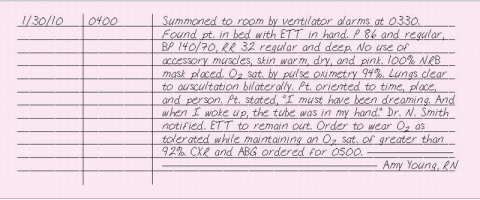 1/30/10 0400 Summoned to room by ventilator alarms at 0330.
Found pt. in bed with ETT in hand. P 86 and regular,
BP 140/70, RR 32 regular and deep. No use of
accessory muscles, skin warm, dry, and pink. 100% NRB
mask placed. O₂ sat. by pulse oximetry 94%. Lungs clear
to auscultation bilaterally. Pt. oriented to time, place,
and person. Pt. stated, "I must have been dreaming. And
when I woke up, the tube was in my hand." Dr. N. Smith
notified. ETT to remain out. Order to wear O₂ as
tolerated while maintaining an O₂ sat. of greater than
92%. CXR and ABG ordered for 0500.
Amy Young, RN